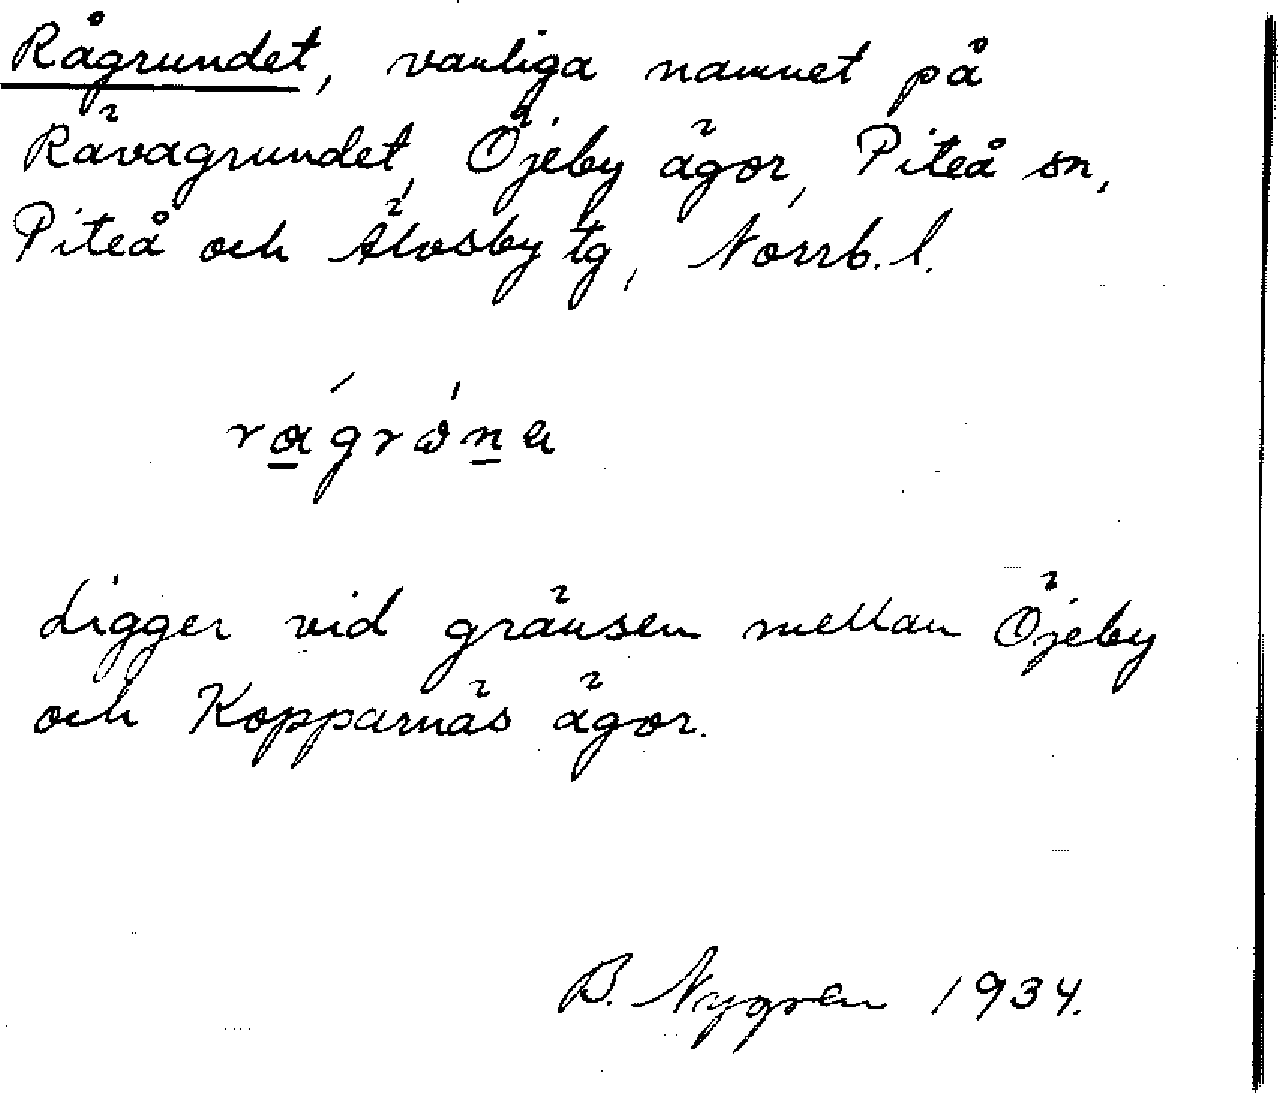 Rågrundet, vanliga namnet på
Rävagrundet, Öjeby ägor, Piteå sn,
Piteå och Älvsby tg, Norrb. l.
Ligger vid gränsen mellan Öjeby
och Kopparnäs ägor.
B. Nygren 1934.